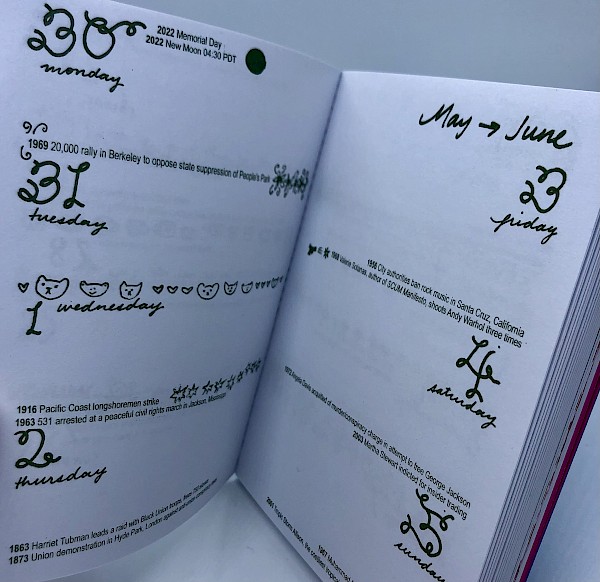 30
2022 Memorial Day
2022 New Moon 04:30 PDT
monday
1969 20,000 rally in Berkeley to oppose state suppression of People's Park
31
tuesday
1
wednesday
1916 Pacific Coast longshoremen strike
1963 531 arrested at a peaceful civil rights march in Jackson, Mississippi
2
thursday
1863 Harriet Tubman leads a raid with Black Union troops, frees
1873 Union demonstration in Hyde Park, London against
May → June
3
friday
1956 City authorities ban rock music in Santa Cruz, California
1968 Valerie Solanas, author of SCUM Manifesto, shoots Andy Warhol three times
4
saturday
1972 Angela Davis acquitted of murder/conspiracy charge in attempt to free George Jackson
2003 Martha Stewart indicted for insider trading
5
sunday